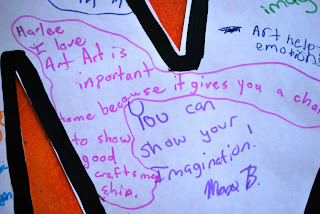 Marlee
I love
Art Art is
inportant
home because it gives you a cha
to show
good
craftsman
ship.
You can
show your
Imagination!
Maxx B.
imag
Art help
emotion